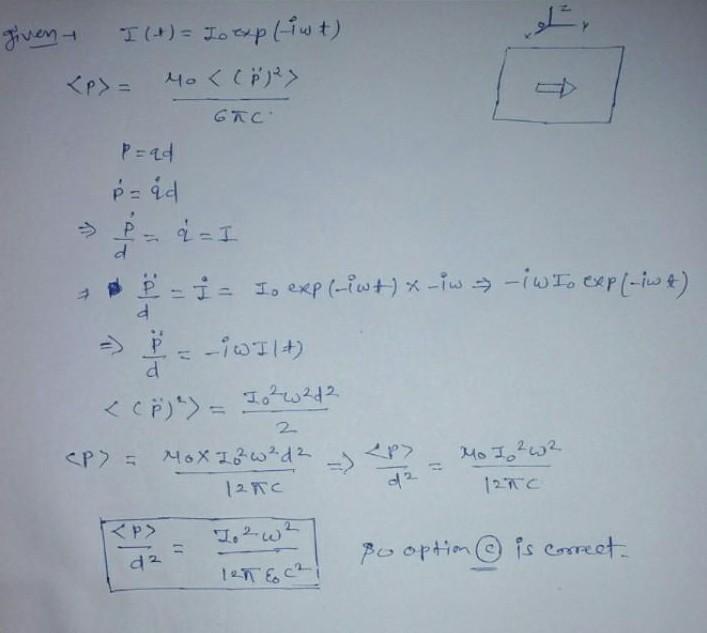 given → I(t) = I₀ exp(-iωt)
z
x y
<P> = μ₀ < (p̈)² > / 6πc
P = qd
ṗ = q̇d
⇒ ṗ/d = q̇ = I
⇒ p̈/d = İ = I₀ exp(-iωt) × -iω ⇒ -iωI₀ exp(-iωt)
⇒ p̈/d = -iωI(t)
< (p̈)² > = I₀²ω²d² / 2
<P> = μ₀ × I₀²ω²d² / 12πc ⇒ <P>/d² = μ₀ I₀²ω² / 12πc
<P>/d² = I₀²ω² / 12πε₀c² So option (c) is correct.